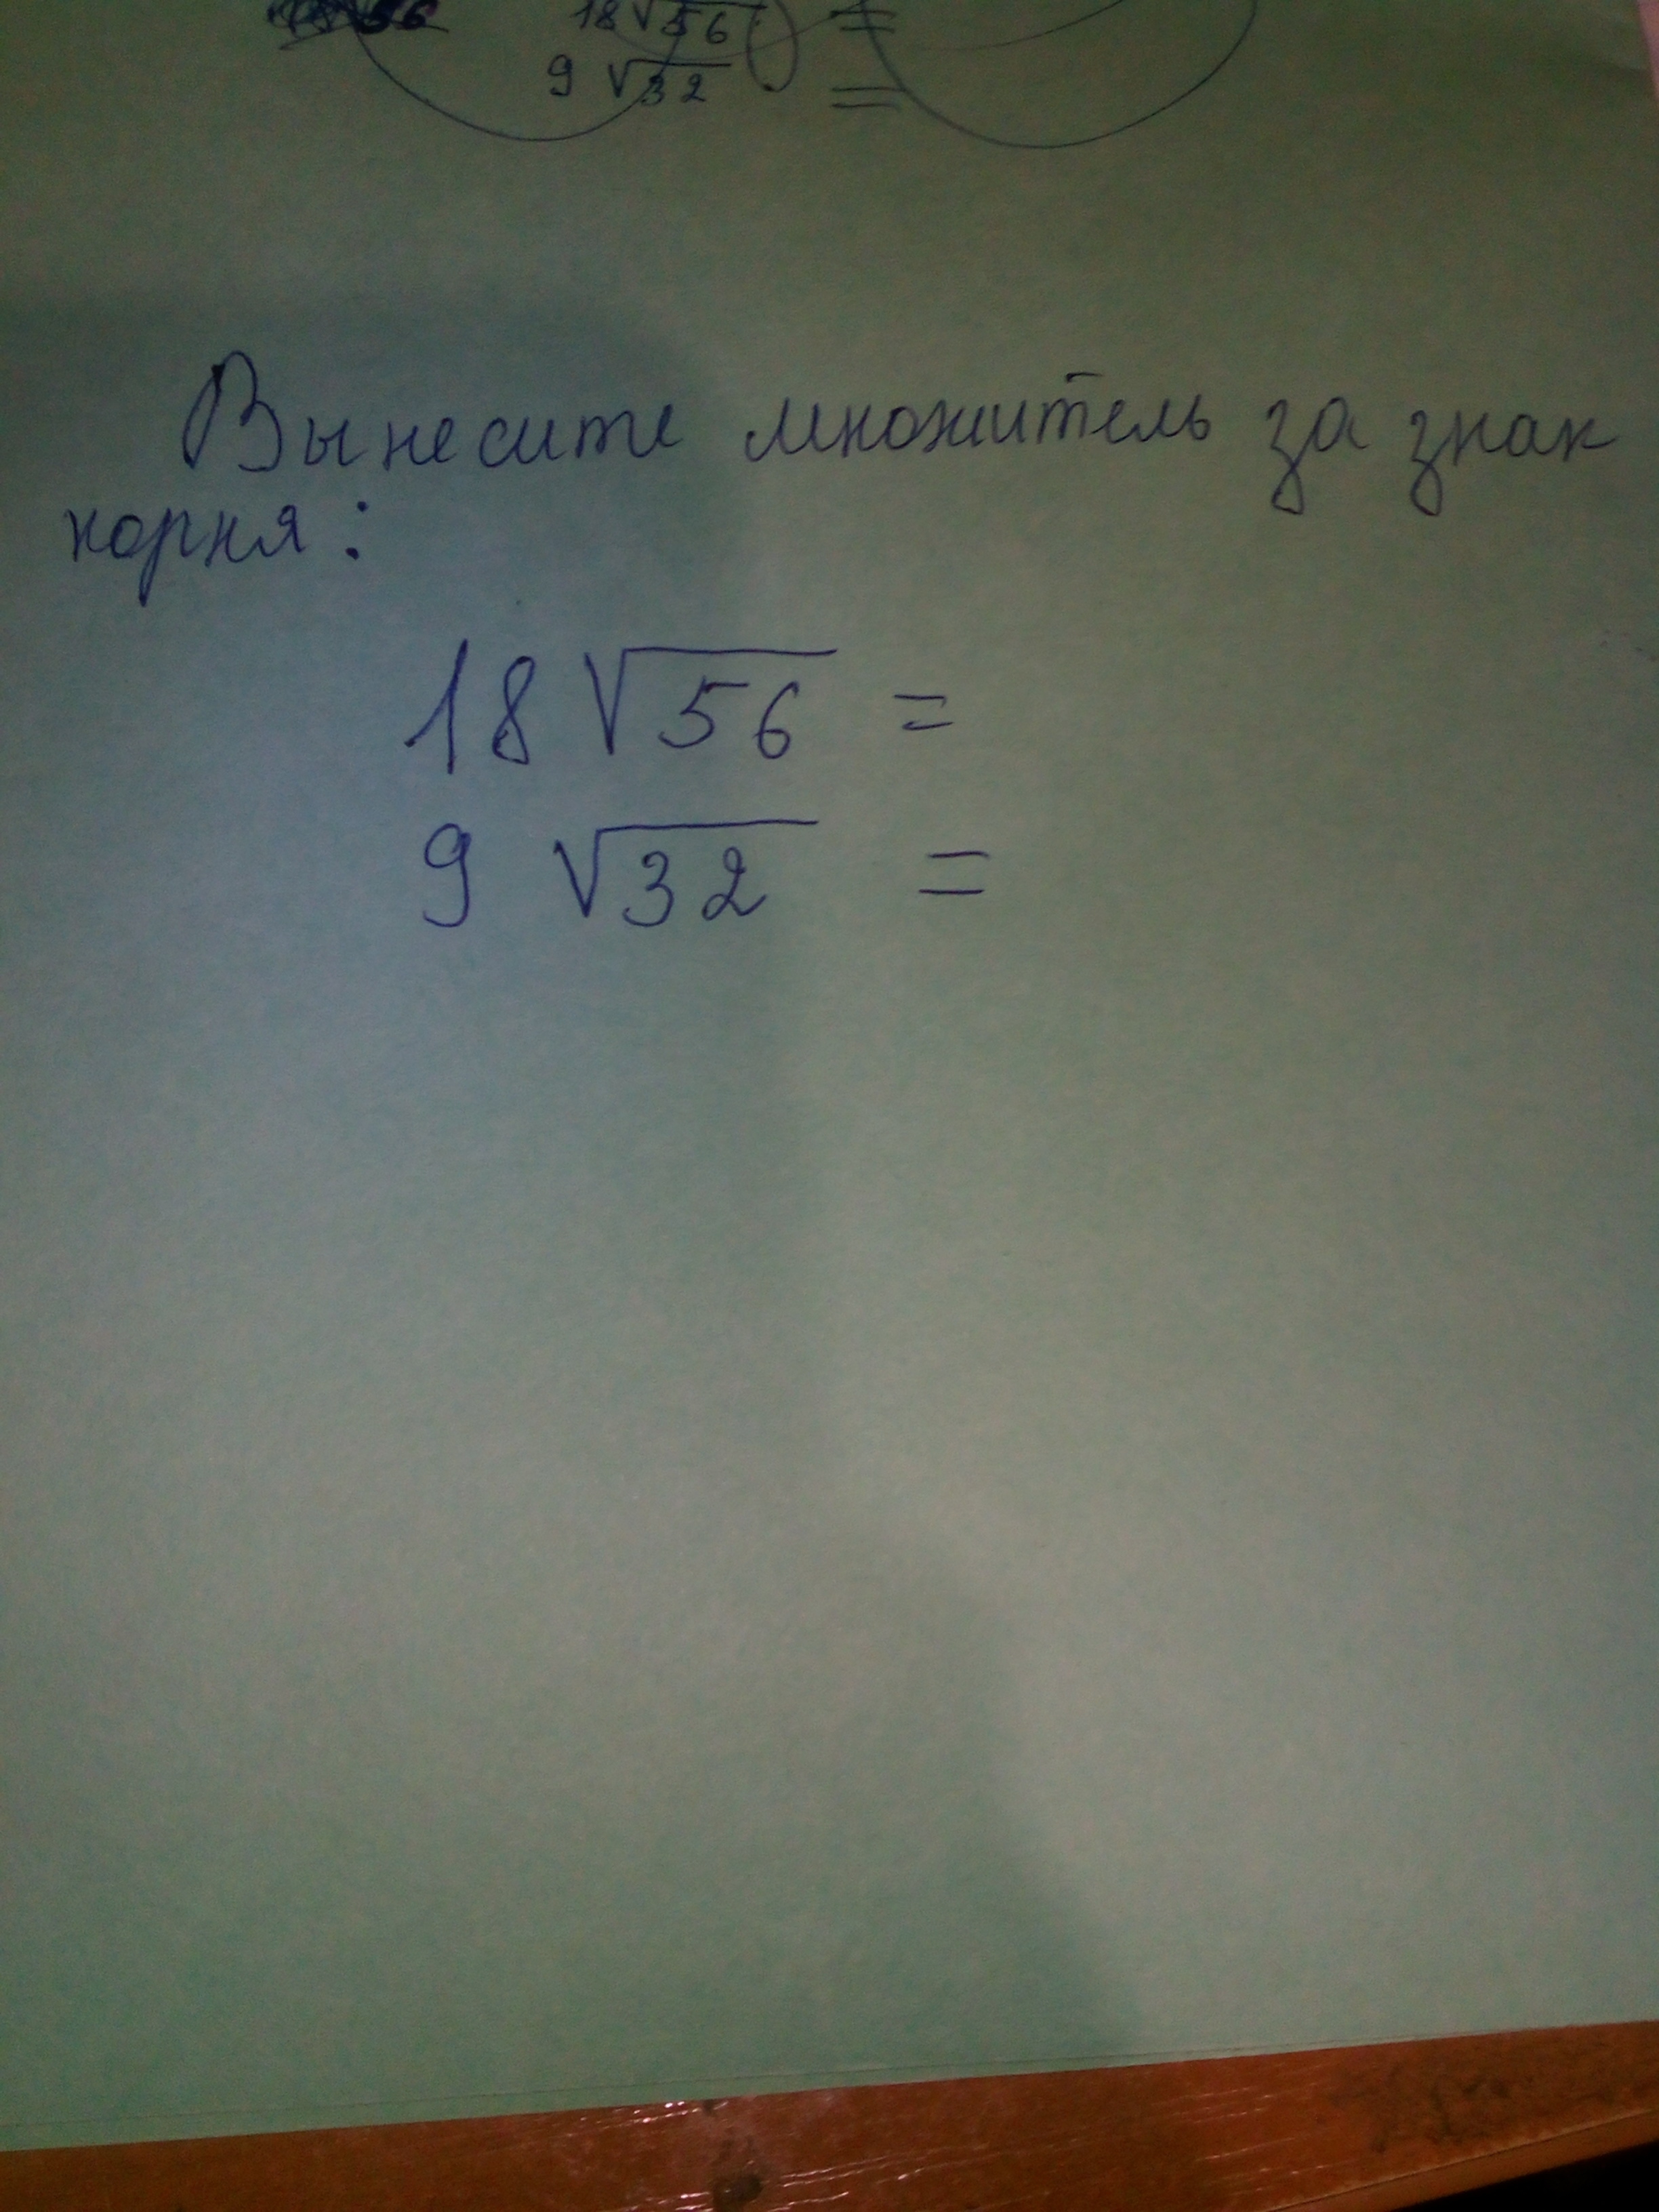 18√56 =
9 √32 =
Вынесите множитель за знак
корня:
18 √56 =
9 √32 =